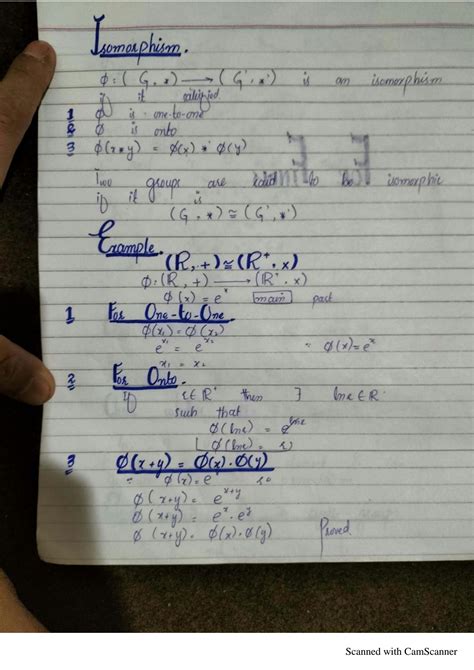 Isomorphism.
φ : (G, *) ⟶ (G', *') is an isomorphism
if it satisfied.
1 φ is one-to-one
2 φ is onto
3 φ(x*y) = φ(x) *' φ(y)
Two groups are said to be isomorphic
if it is
(G, *) ≅ (G', *')
Example.
(R, +) ≅ (R⁺, ×)
φ : (R, +) ⟶ (R⁺, ×)
φ(x) = eˣ main part
1 For One-to-One.
φ(x₁) = φ(x₂)
eˣ¹ = eˣ² ∵ φ(x) = eˣ
x₁ = x₂
2 For Onto.
If r ∈ R⁺ then ∃ ln r ∈ R
such that
φ(ln r) = e^{ln r}
φ(ln r) = r
3 φ(x+y) = φ(x).φ(y)
∵ φ(x) = eˣ so
φ(x+y) = eˣ⁺ʸ
φ(x+y) = eˣ.eʸ
φ(x+y) = φ(x).φ(y) Proved
Scanned with CamScanner